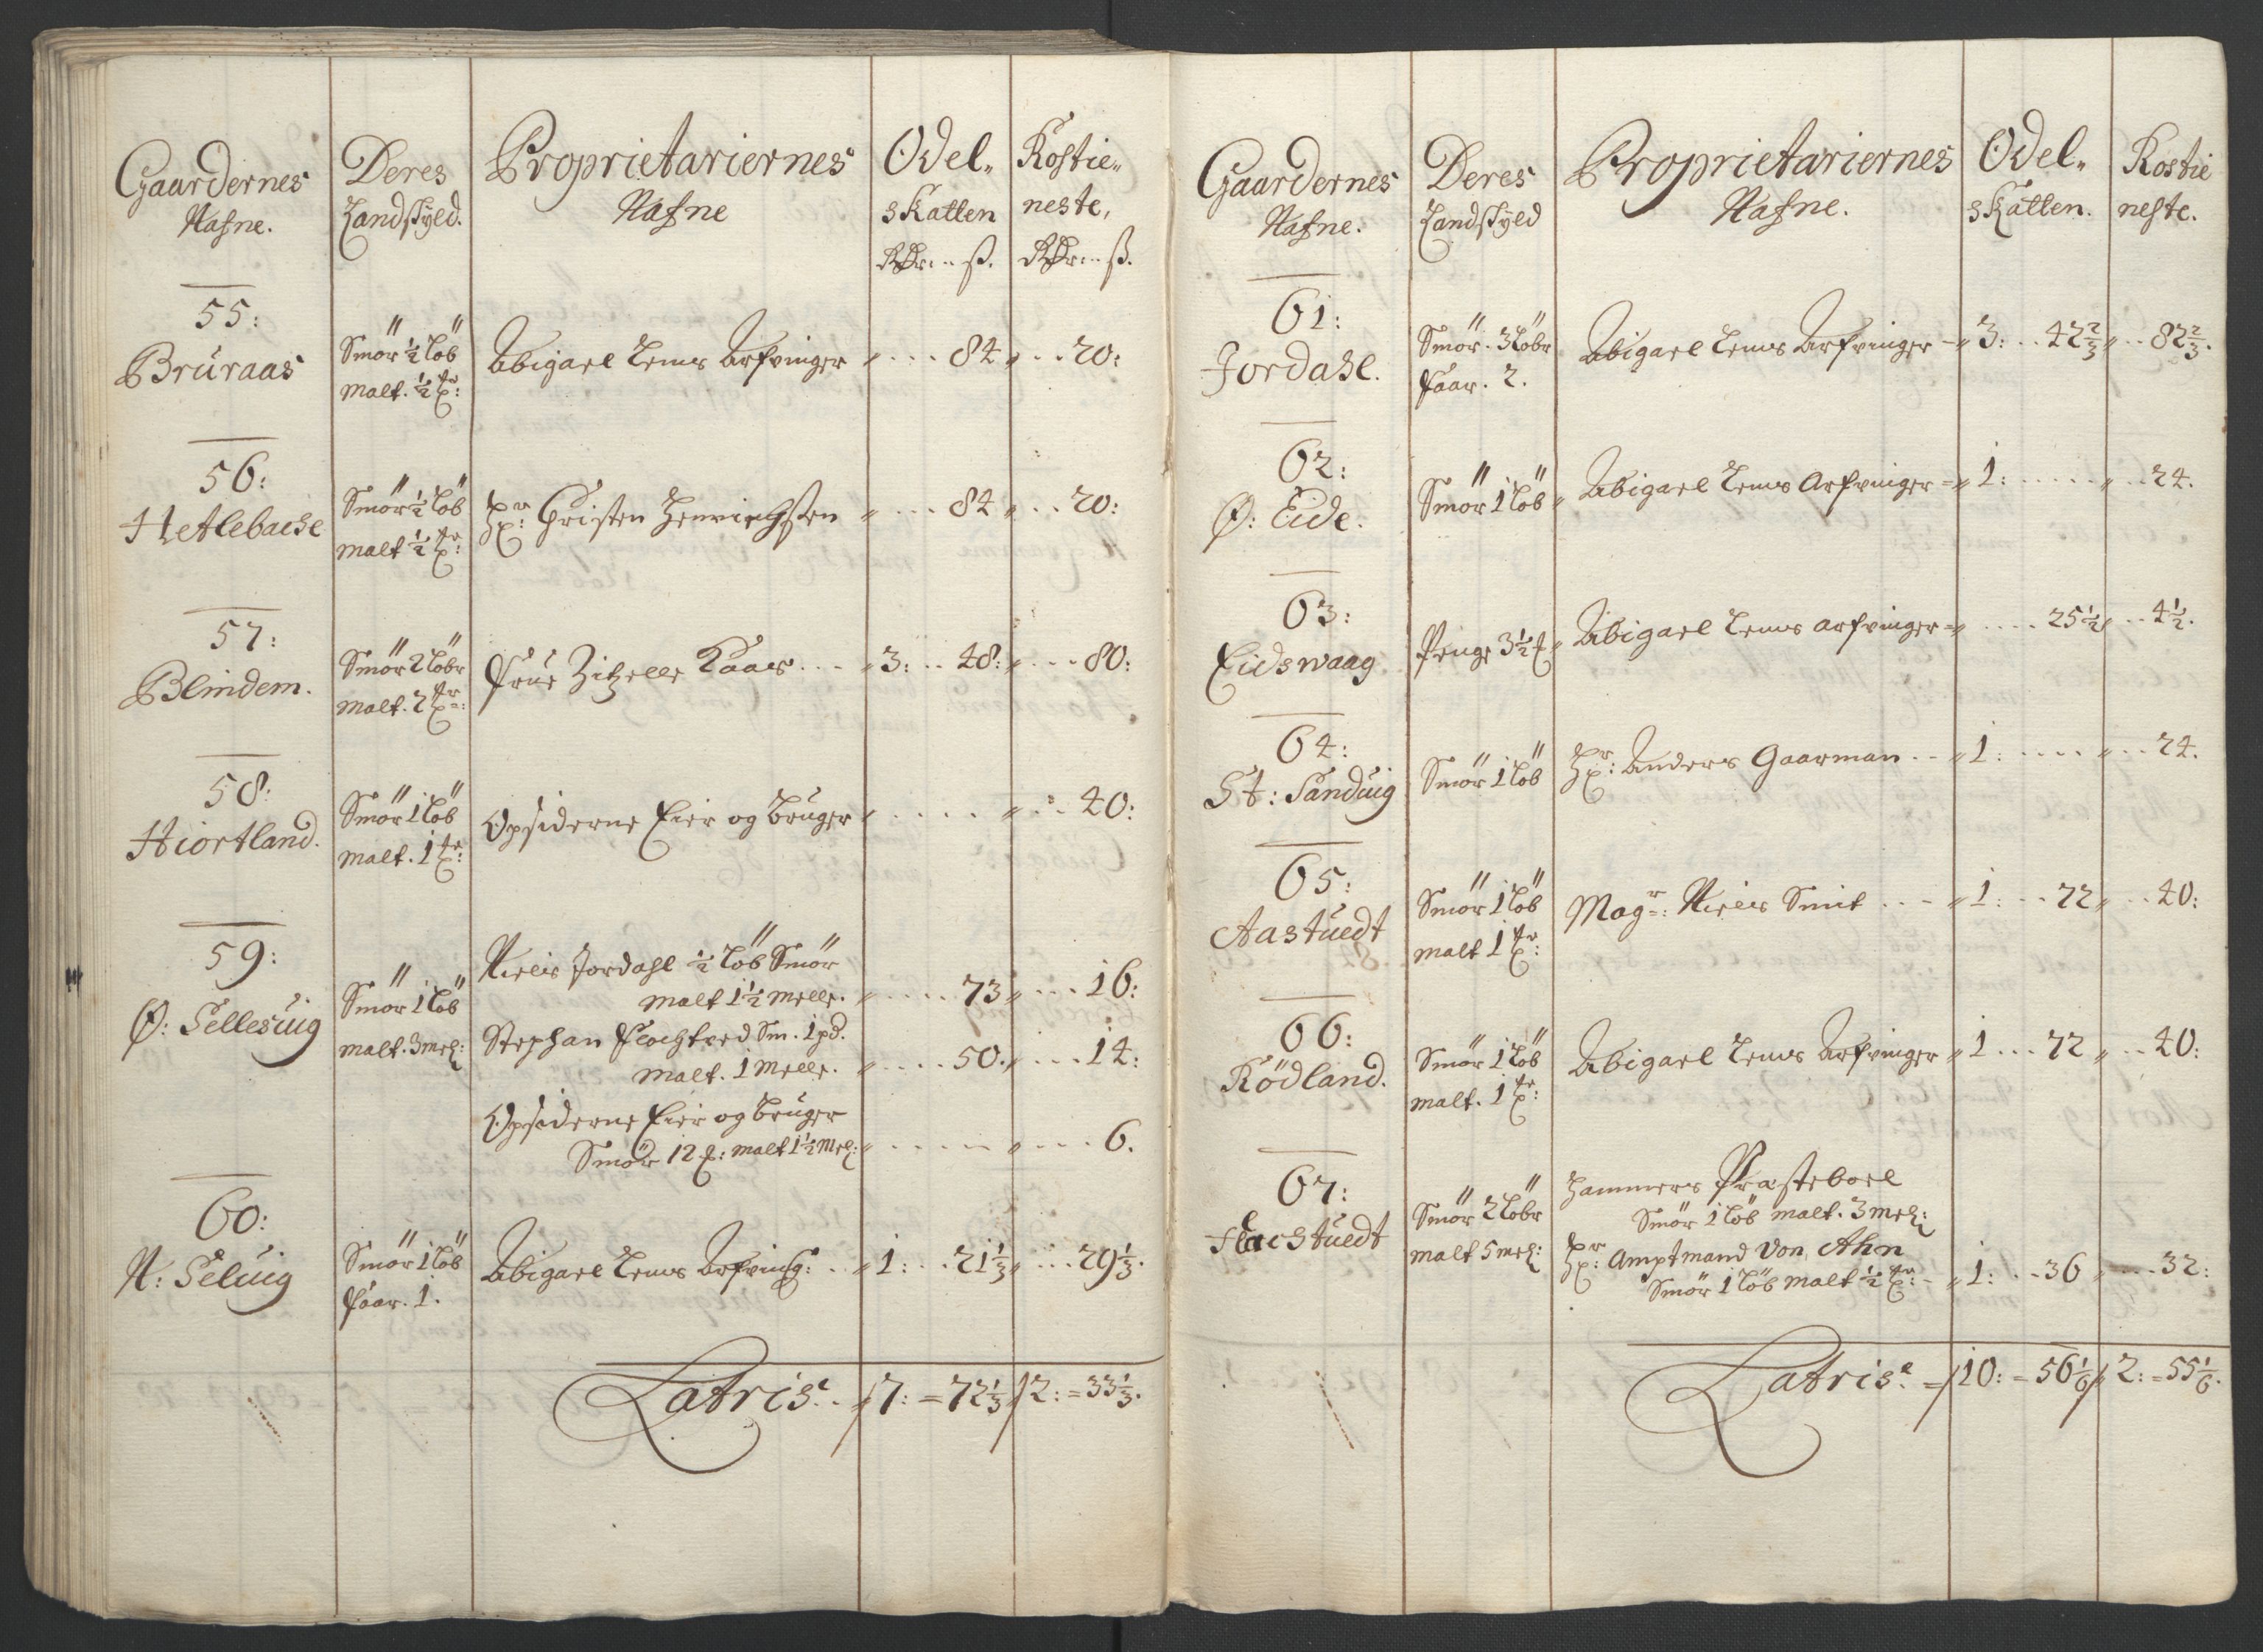 Gaardernes Nafne. | Deres Landskyld. | Proprietariernes Nafne | Odel- skatten | Rostie- neste,
Rdr: ß. | Rdr: ß.
55:
Bruraas | Smör ½ löb | Abigael Lems Arfvinger | 84 | 20:
malt. ½ tr:
56:
Hetlebache | Smör ½ löb | Hr: Christen Henrichsen | 84 | 20:
malt ½ tr:
57:
Blindem. | Smör 2 löbr | Frue Zitzelle Kaas | 3: 48: | 80:
malt. 2 tr:
58:
Hiortland. | Smör 1 löb | Opsiderne Eier og bruger | 40:
malt. 1 tr:
59:
Ø: Sellesuig | Smör 1 löb | Niels Jordahl ½ löb Smör
malt. 3 mel: | malt 1½ melle. | 73 | 16:
Stephan Flochtved Sm. 1 pd.
malt. 1 Melle. | 50. | 14:
Opsiderne Eier og bruger
Smör 12 : malt 1½ mel: | 6.
60:
N: Seluig | Smör 1 löb | Abigael Lems Arfving: | 1: 21⅓ | 29⅓.
Faar. 1.
Latris. 7: = 72⅓ | 2: = 33⅓.
Gaardernes Nafne. | Deres Landskyld | Proprietariernes Nafne. | Odel- skatten. | Rostie neste.
61:
Jordahl. | Smör. 3 löbr | Abigael Lems Arfvinger | 3: 42⅔ | 82⅔.
Faar. 2.
62:
Ø: Eide. | Smör 1 löb | Abigael Lems Arfvinger | 1: | 24.
63:
Eidswaag | Penge 3½ | Abigael Lems arfvinger | 25½ | 4½.
64:
St: Sanduig | Smör 1 löb | Hr: Anders Gaarman | 1: | 24.
65:
Aastuedt | Smör 1 löb | Magr: Niels Smit | 1: 72 | 40:
malt 1 tr:
66:
Rödland. | Smör 1 löb | Abigael Lems Arfvinger | 1 72 | 40:
malt. 1 tr:
67:
Flacstuedt | Smör 2 löbr | Hammers Præsteboel
malt 5 mel: | Smör 1 löb malt. 3 mel:
Hr: Amptmand Von Ahn
Smör 1 löb malt ½ tr: | 1: 36 | 32:
Latris. 10: = 56⅙ | 2: = 55⅙.